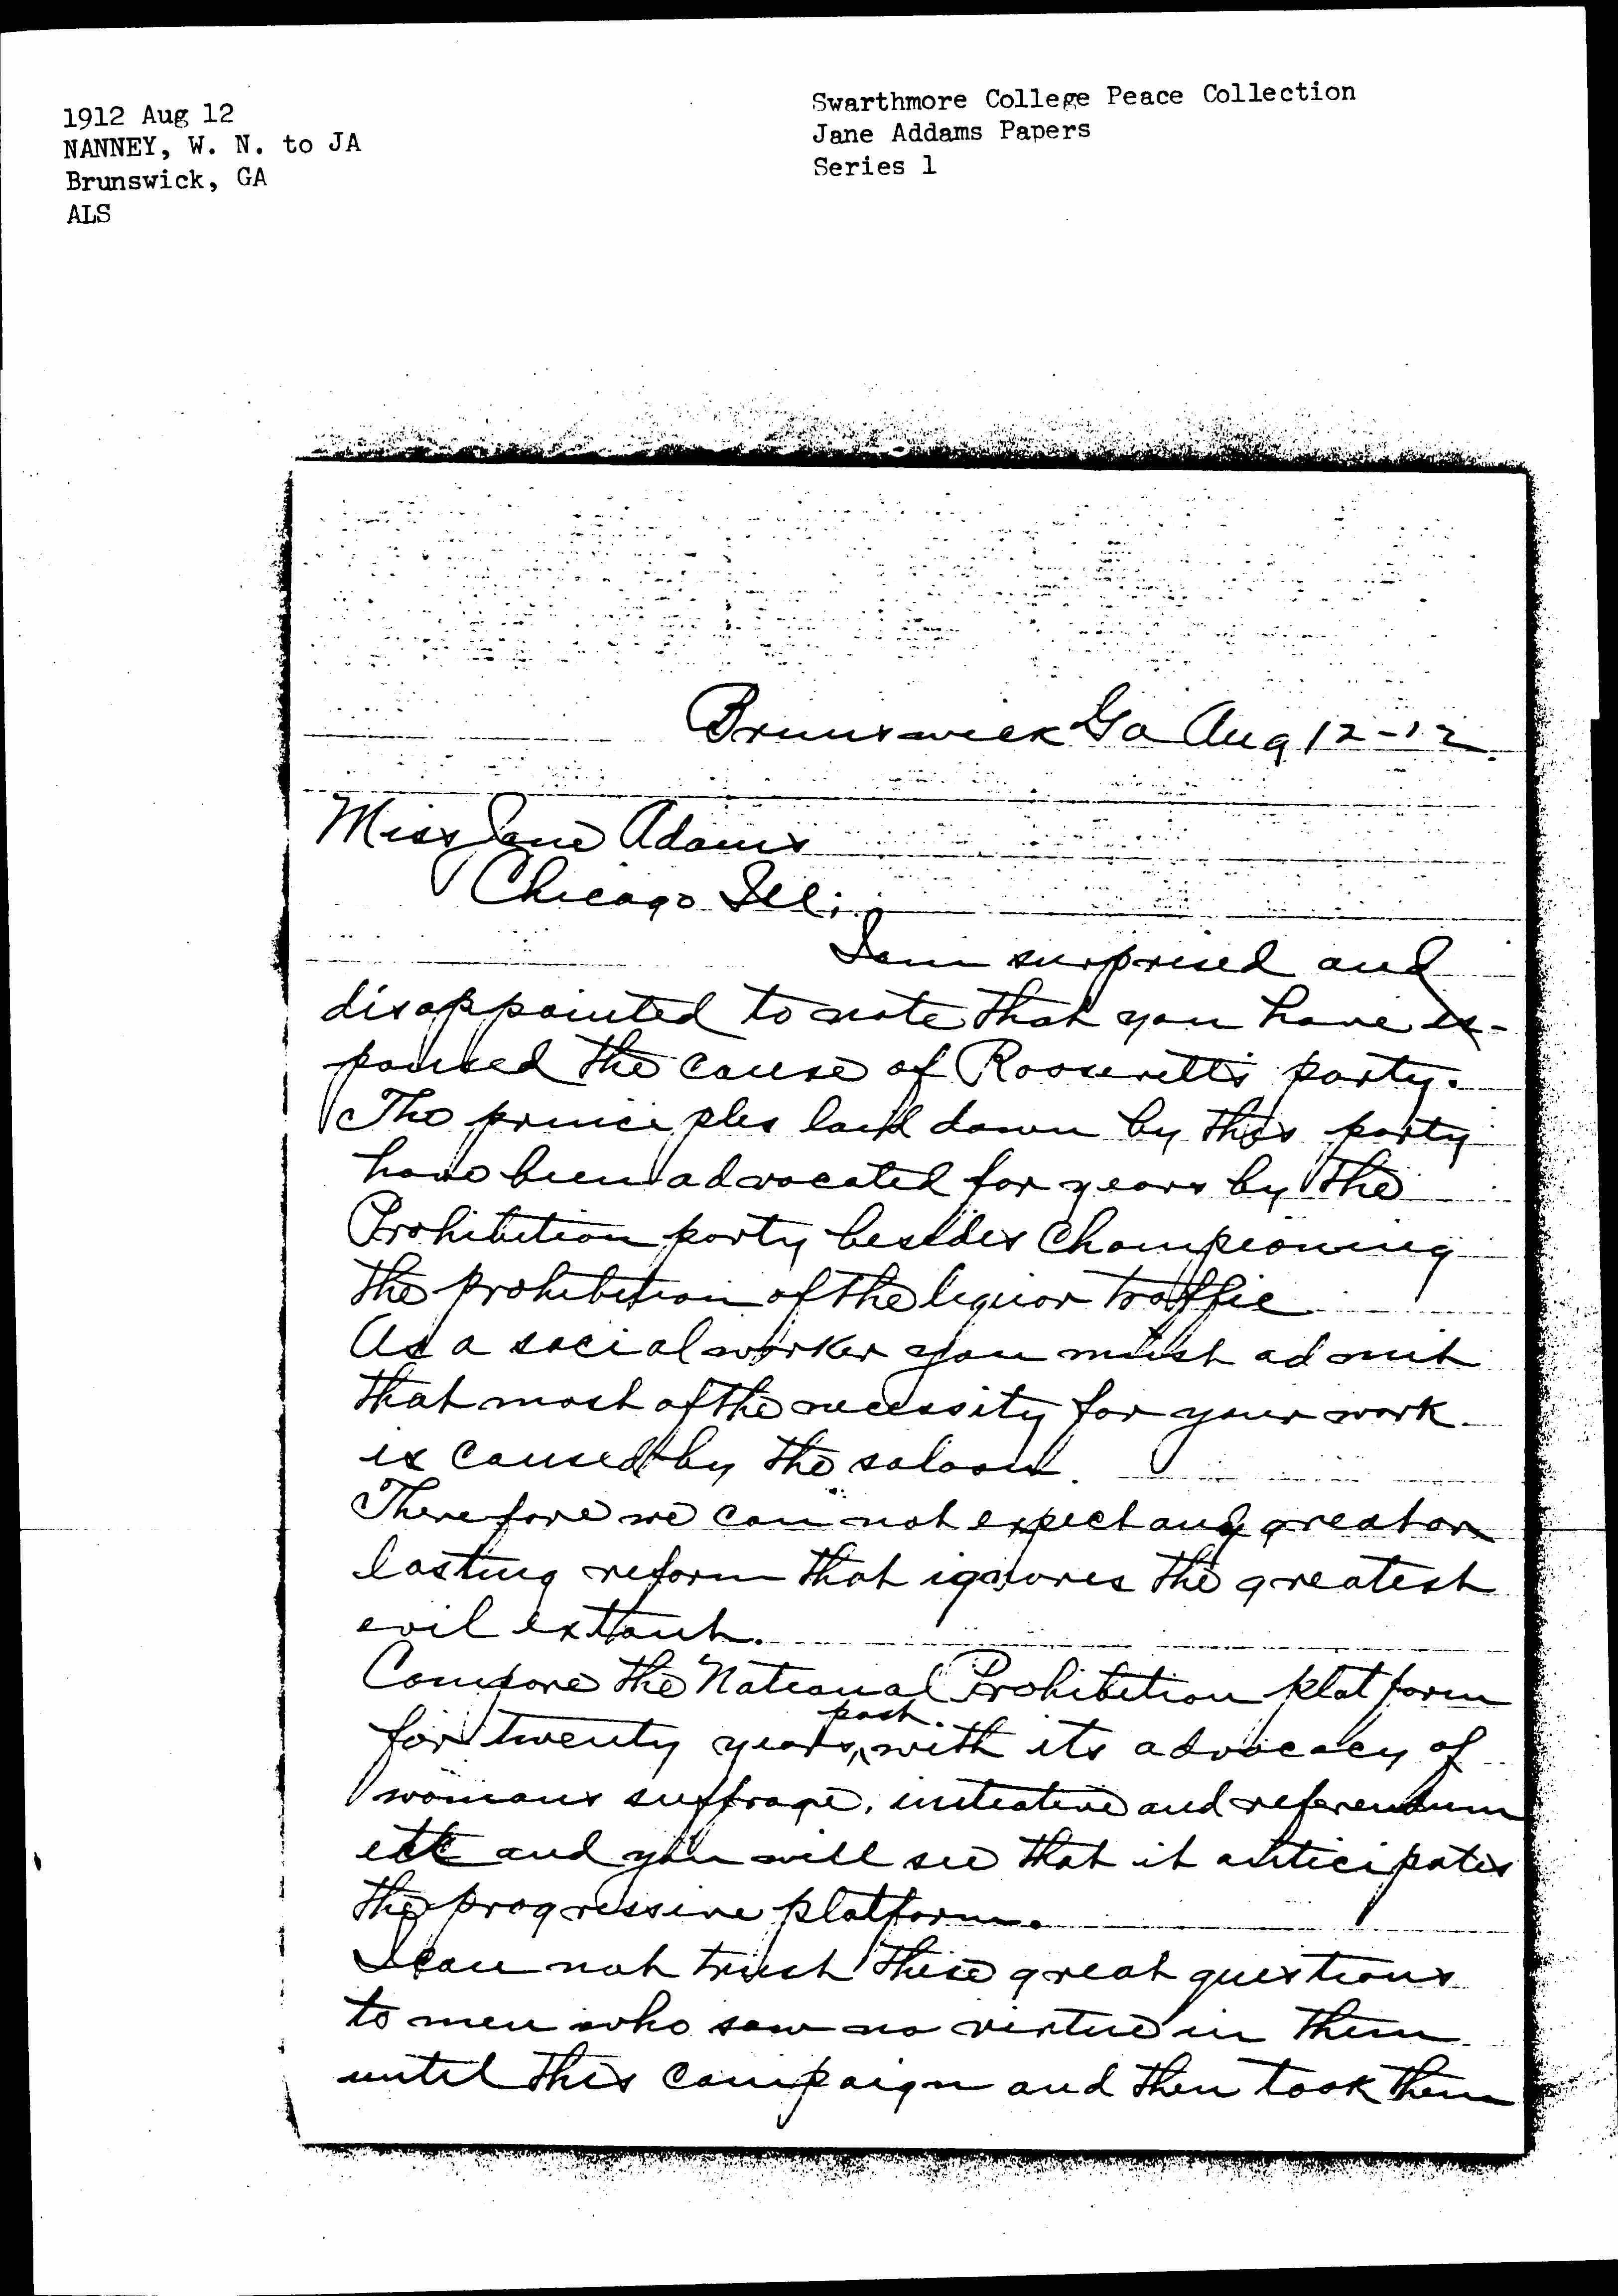 1912 Aug 12
NANNEY, W. N. to JA
Brunswick, GA
ALS
Swarthmore College Peace Collection
Jane Addams Papers
Series 1
Brunswick Ga Aug 12-12.
Miss Jane Adams
Chicago Ill;
I am surprised and
disappointed to note that you have es-
poused the cause of Roosevelt's party.
The principles laid down by this party
have been advocated for years by the
Prohibition party besides championing
the prohibition of the liquor traffic
As a social worker you must admit
that most of the necessity for your work
is caused by the saloon.
Therefore we can not expect any great or
lasting reform that ignores the greatest
evil extant.
Compare the National Prohibition platform
for twenty years past. with its advocacy of
womans suffrage, initiative and referendum
etc and you will see that it anticipates
the progressive platform.
I can not trust these great questions
to men who saw no virtue in them
until this campaign and then took them